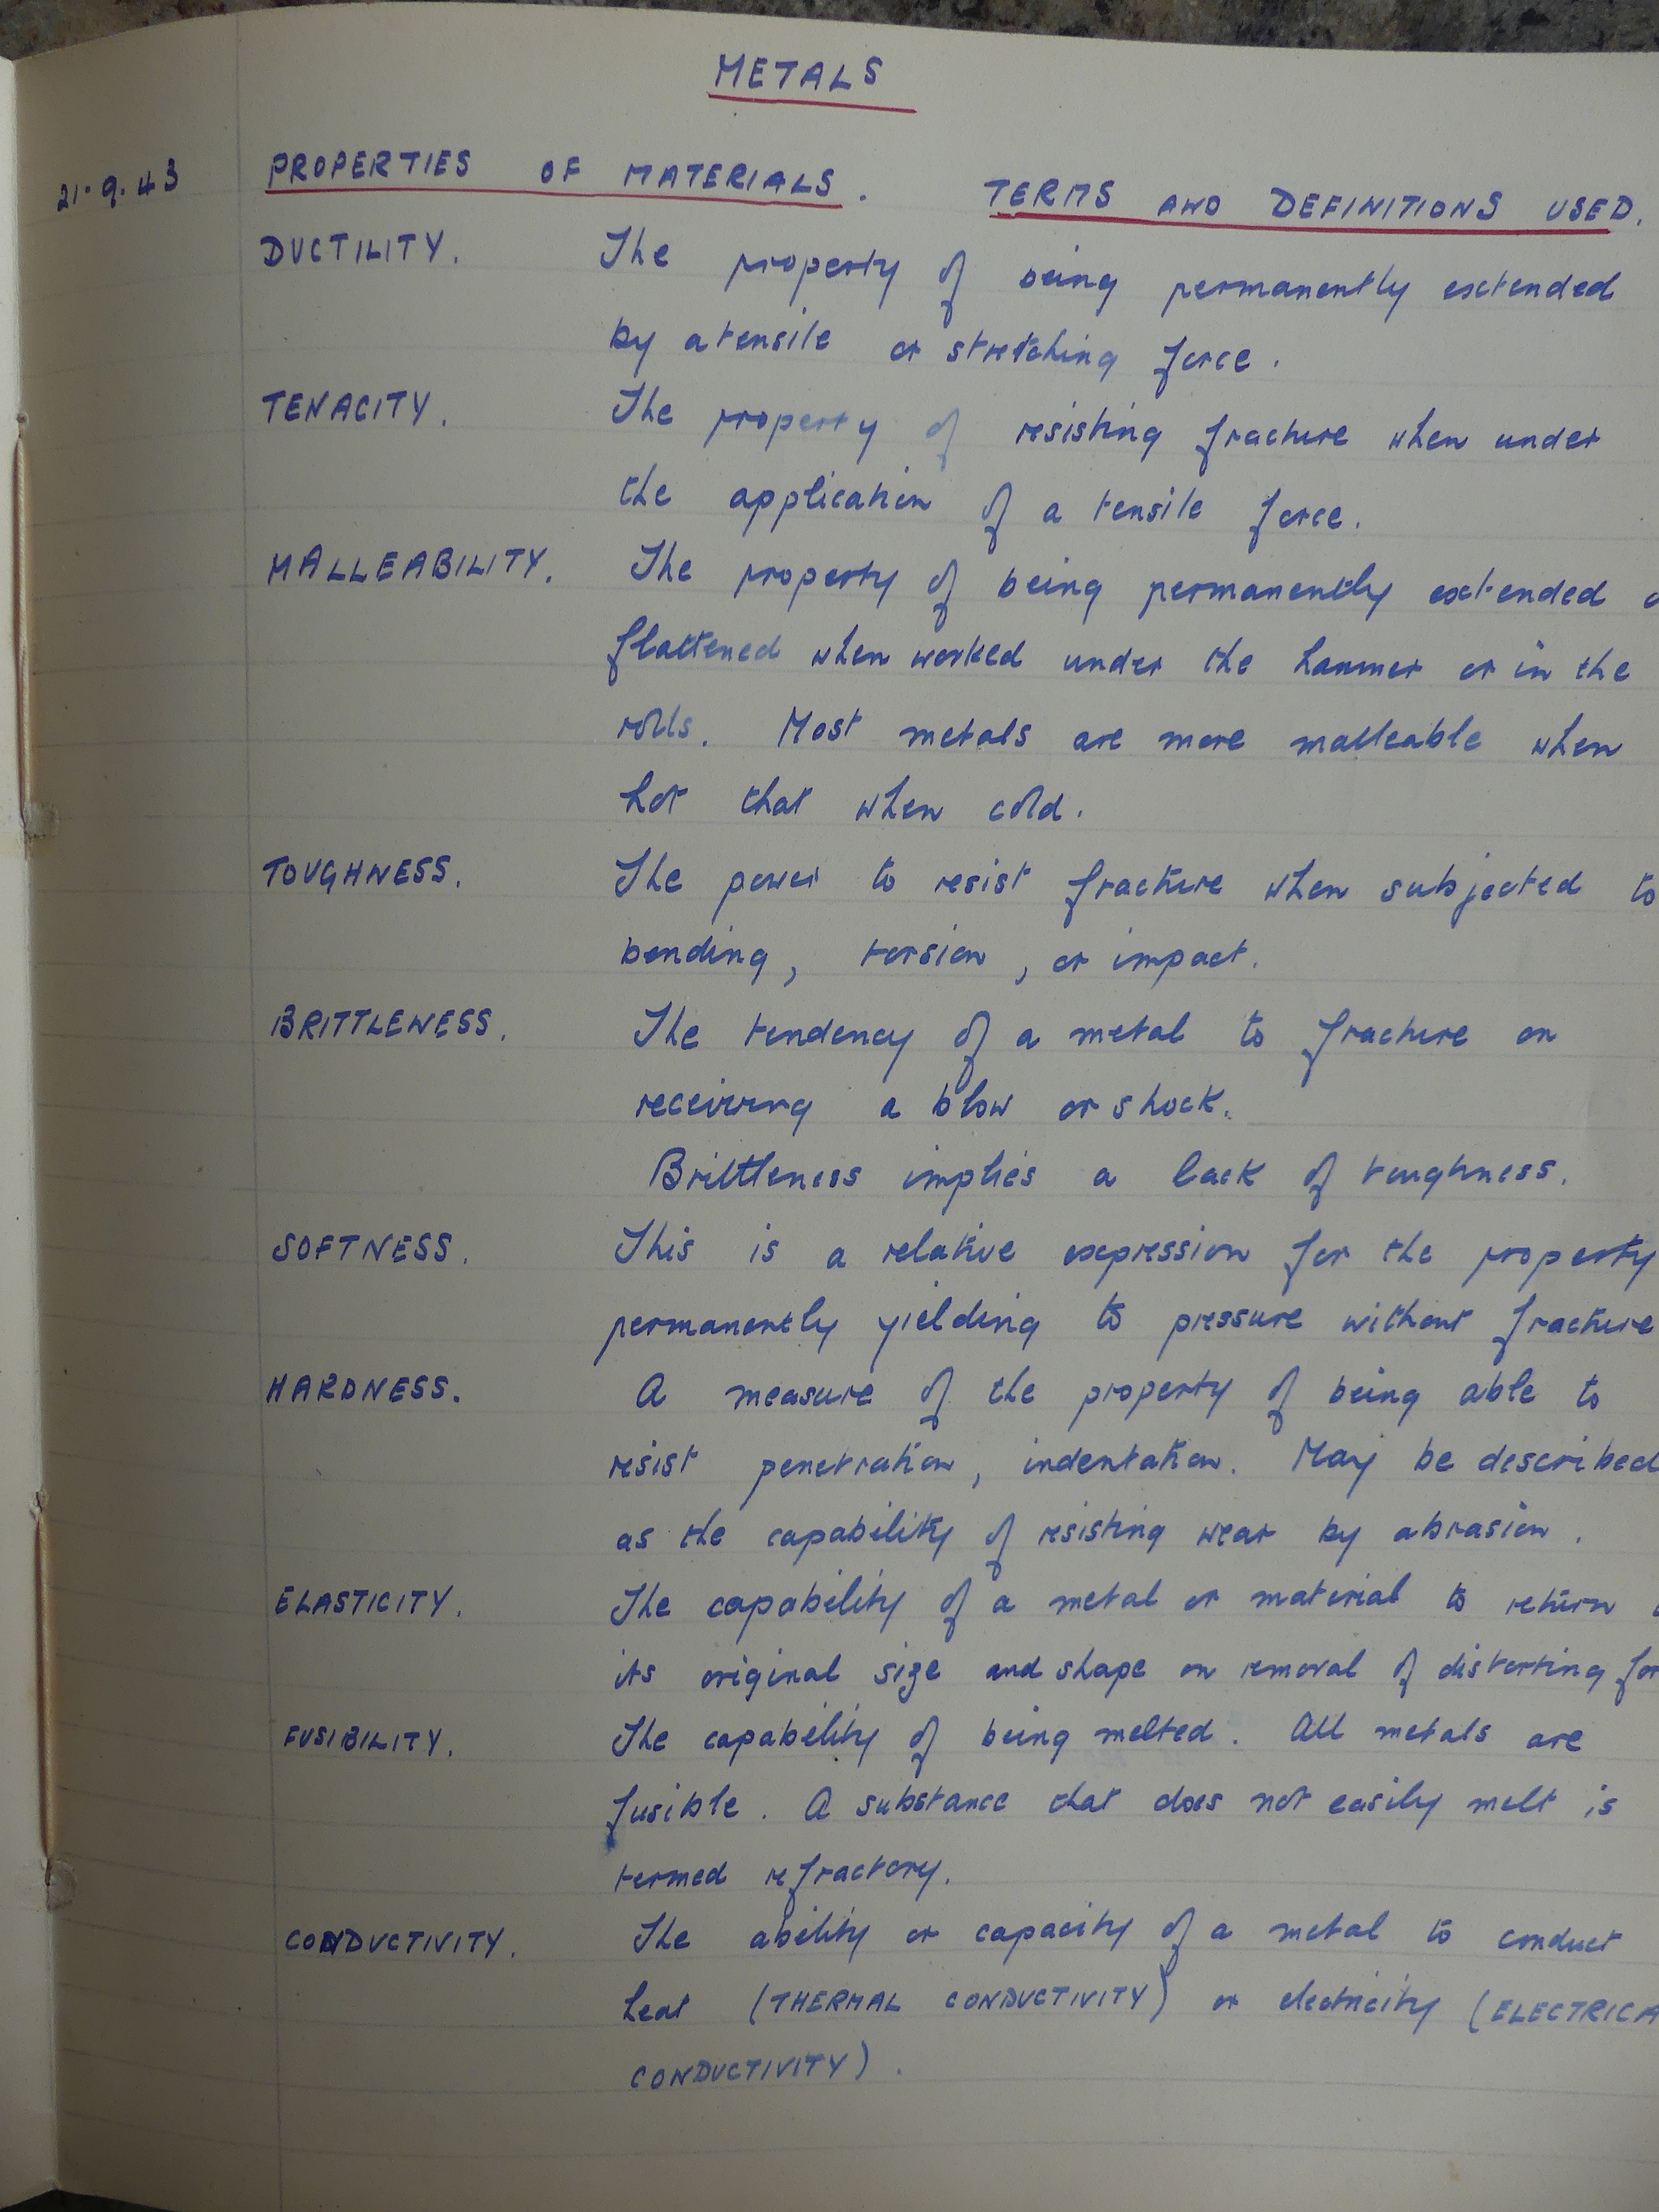 METALS
21.9.43
PROPERTIES OF MATERIALS. TERMS AND DEFINITIONS USED.
DUCTILITY. The property of being permanently extended
by a tensile or stretching force.
TENACITY. The property of resisting fracture when under
the application of a tensile force.
MALLEABILITY. The property of being permanently extended
flattened when worked under the hammer or in the
rolls. Most metals are more malleable when
hot that when cold.
TOUGHNESS. The power to resist fracture when subjected to
bending, torsion, or impact.
BRITTLENESS. The tendency of a metal to fracture on
receiving a blow or shock.
Brittleness implies a lack of toughness.
SOFTNESS. This is a relative expression for the property
permanently yielding to pressure without fracture
HARDNESS. A measure of the property of being able to
resist penetration, indentation. May be described
as the capability of resisting wear by abrasion.
ELASTICITY. The capability of a metal or material to return
its original size and shape on removal of distorting for
FUSIBILITY. The capability of being melted. All metals are
fusible. A substance that does not easily melt is
termed refractory.
CONDUCTIVITY. The ability or capacity of a metal to conduct
heat (THERMAL CONDUCTIVITY) or electricity (ELECTRICA
CONDUCTIVITY).